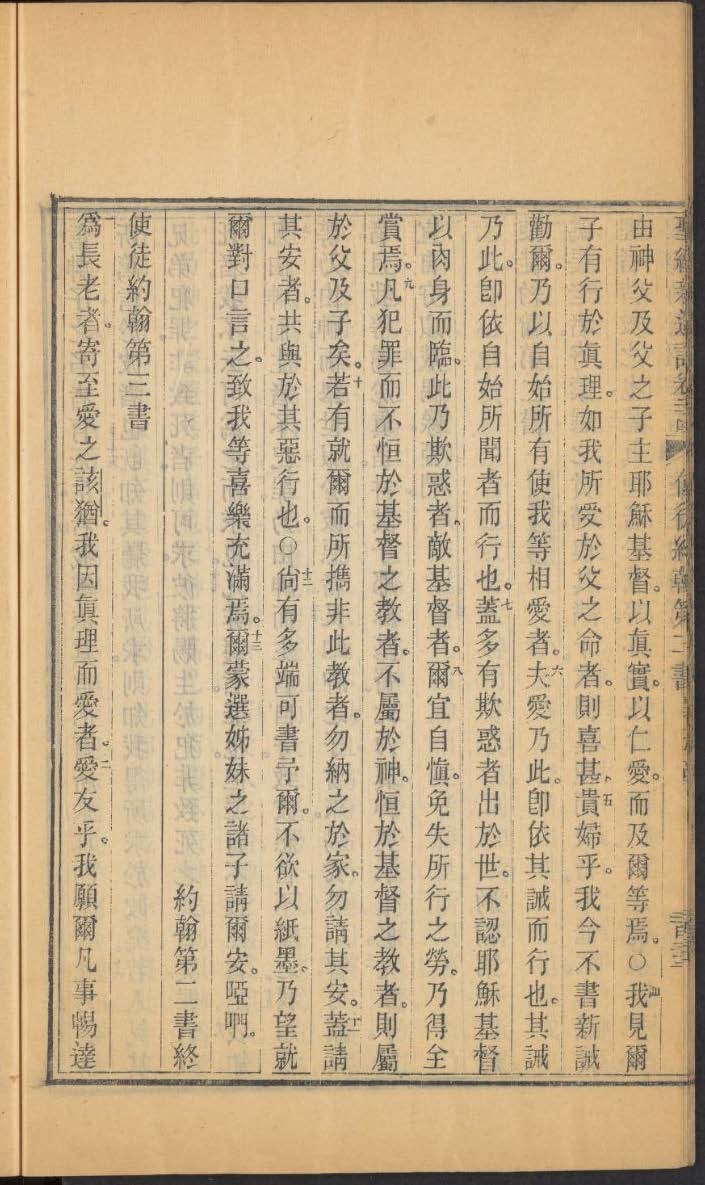 由神父及父之子主耶穌基督。以眞實。以仁愛。而及爾等焉。○四我見爾
子有行於眞理。如我所愛於父之命者。則喜甚。五貴婦乎。我今不書新誡
勸爾。乃以自始所有使我等相愛者。六夫愛乃此。卽依其誡而行也。其誡
乃此。卽依自始所聞者而行也。七蓋多有欺惑者出於世。不認耶穌基督
以肉身而臨。此乃欺惑者。敵基督者。八爾宜自愼。免失所行之勞。乃得全
賞焉。九凡犯罪而不恒於基督之教者。不屬於神。恒於基督之教者。則屬
於父及子矣。十若有就爾而所攜非此教者。勿納之於家。勿請其安。十一蓋請
其安者。共與於其惡行也。○十二尙有多端可書予爾。不欲以紙墨。乃望就
爾對口言之。致我等喜樂充滿焉。十三爾蒙選姊妹之諸子請爾安。啞啊。
約翰第二書終
使徒約翰第三書
一爲長老者。寄至愛之該猶。我因眞理而愛者。二愛友乎。我願爾凡事暢達